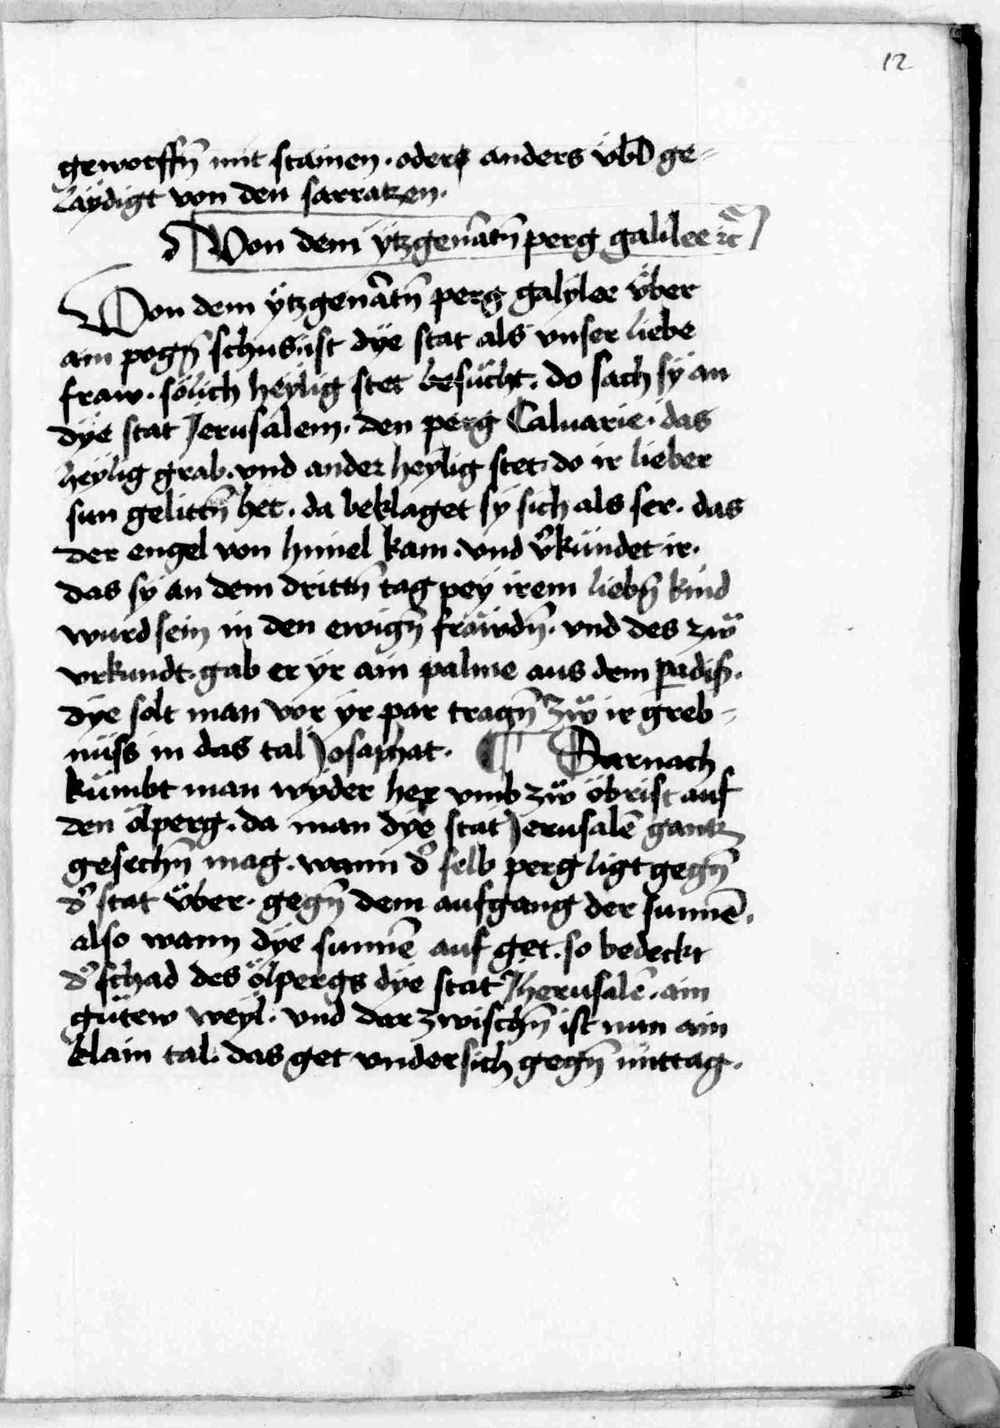 12
geworffn̄ mit stainen · oder anders vbl̄ ge=
läydigt von den sarratzen ·
Von dem ÿtzgenātn̄ perg galilee ꝛc̄
Von dem ÿtzgenātn̄ perg galÿlee v̈ber
ain pogn̄ schus ist dÿe stat als vnser liebe
fraw · sölich heÿlig stet besücht · do sach sÿ an
dÿe stat Jerusalem · den perg Caluarie · das
heÿlig grab · vnd ander heÿlig stet · do ir lieber
sun gelittn̄ het · da beklaget sÿ sich als ser · das
der engel von himel kam · vnd v̉kündet ir ·
das sÿ an dem drittn̄ tag peÿ irem liebn̄ kind
wurd sein in den ewign̄ fräwdn̄ · vnd des zẅ
vrkundt · gab er ÿr ain palme aus dem padiß ·
dÿe solt man vor ÿr par tragn̄ zẅ ir greb=
nüss in das tal Josaphat · ¶ Darnach
kümbt man wÿder her vmb zẅ öbrist auf
den ölperg · da man dÿe stat Jerusalē gantz
gesechn̄ mag · wann d̉ selb perg ligt gegn̄
d̉ stat v̈ber · gegn̄ dem aufgang der sunnē ·
also wann dÿe sunnē auf get · so bedeckt
d̉ schad des ölpergs dÿe stat Jherusalē · ain
gütew weÿl · vnd dar zwischn̄ ist nun ain
klain tal · das get vndersich gegn̄ mittag ·